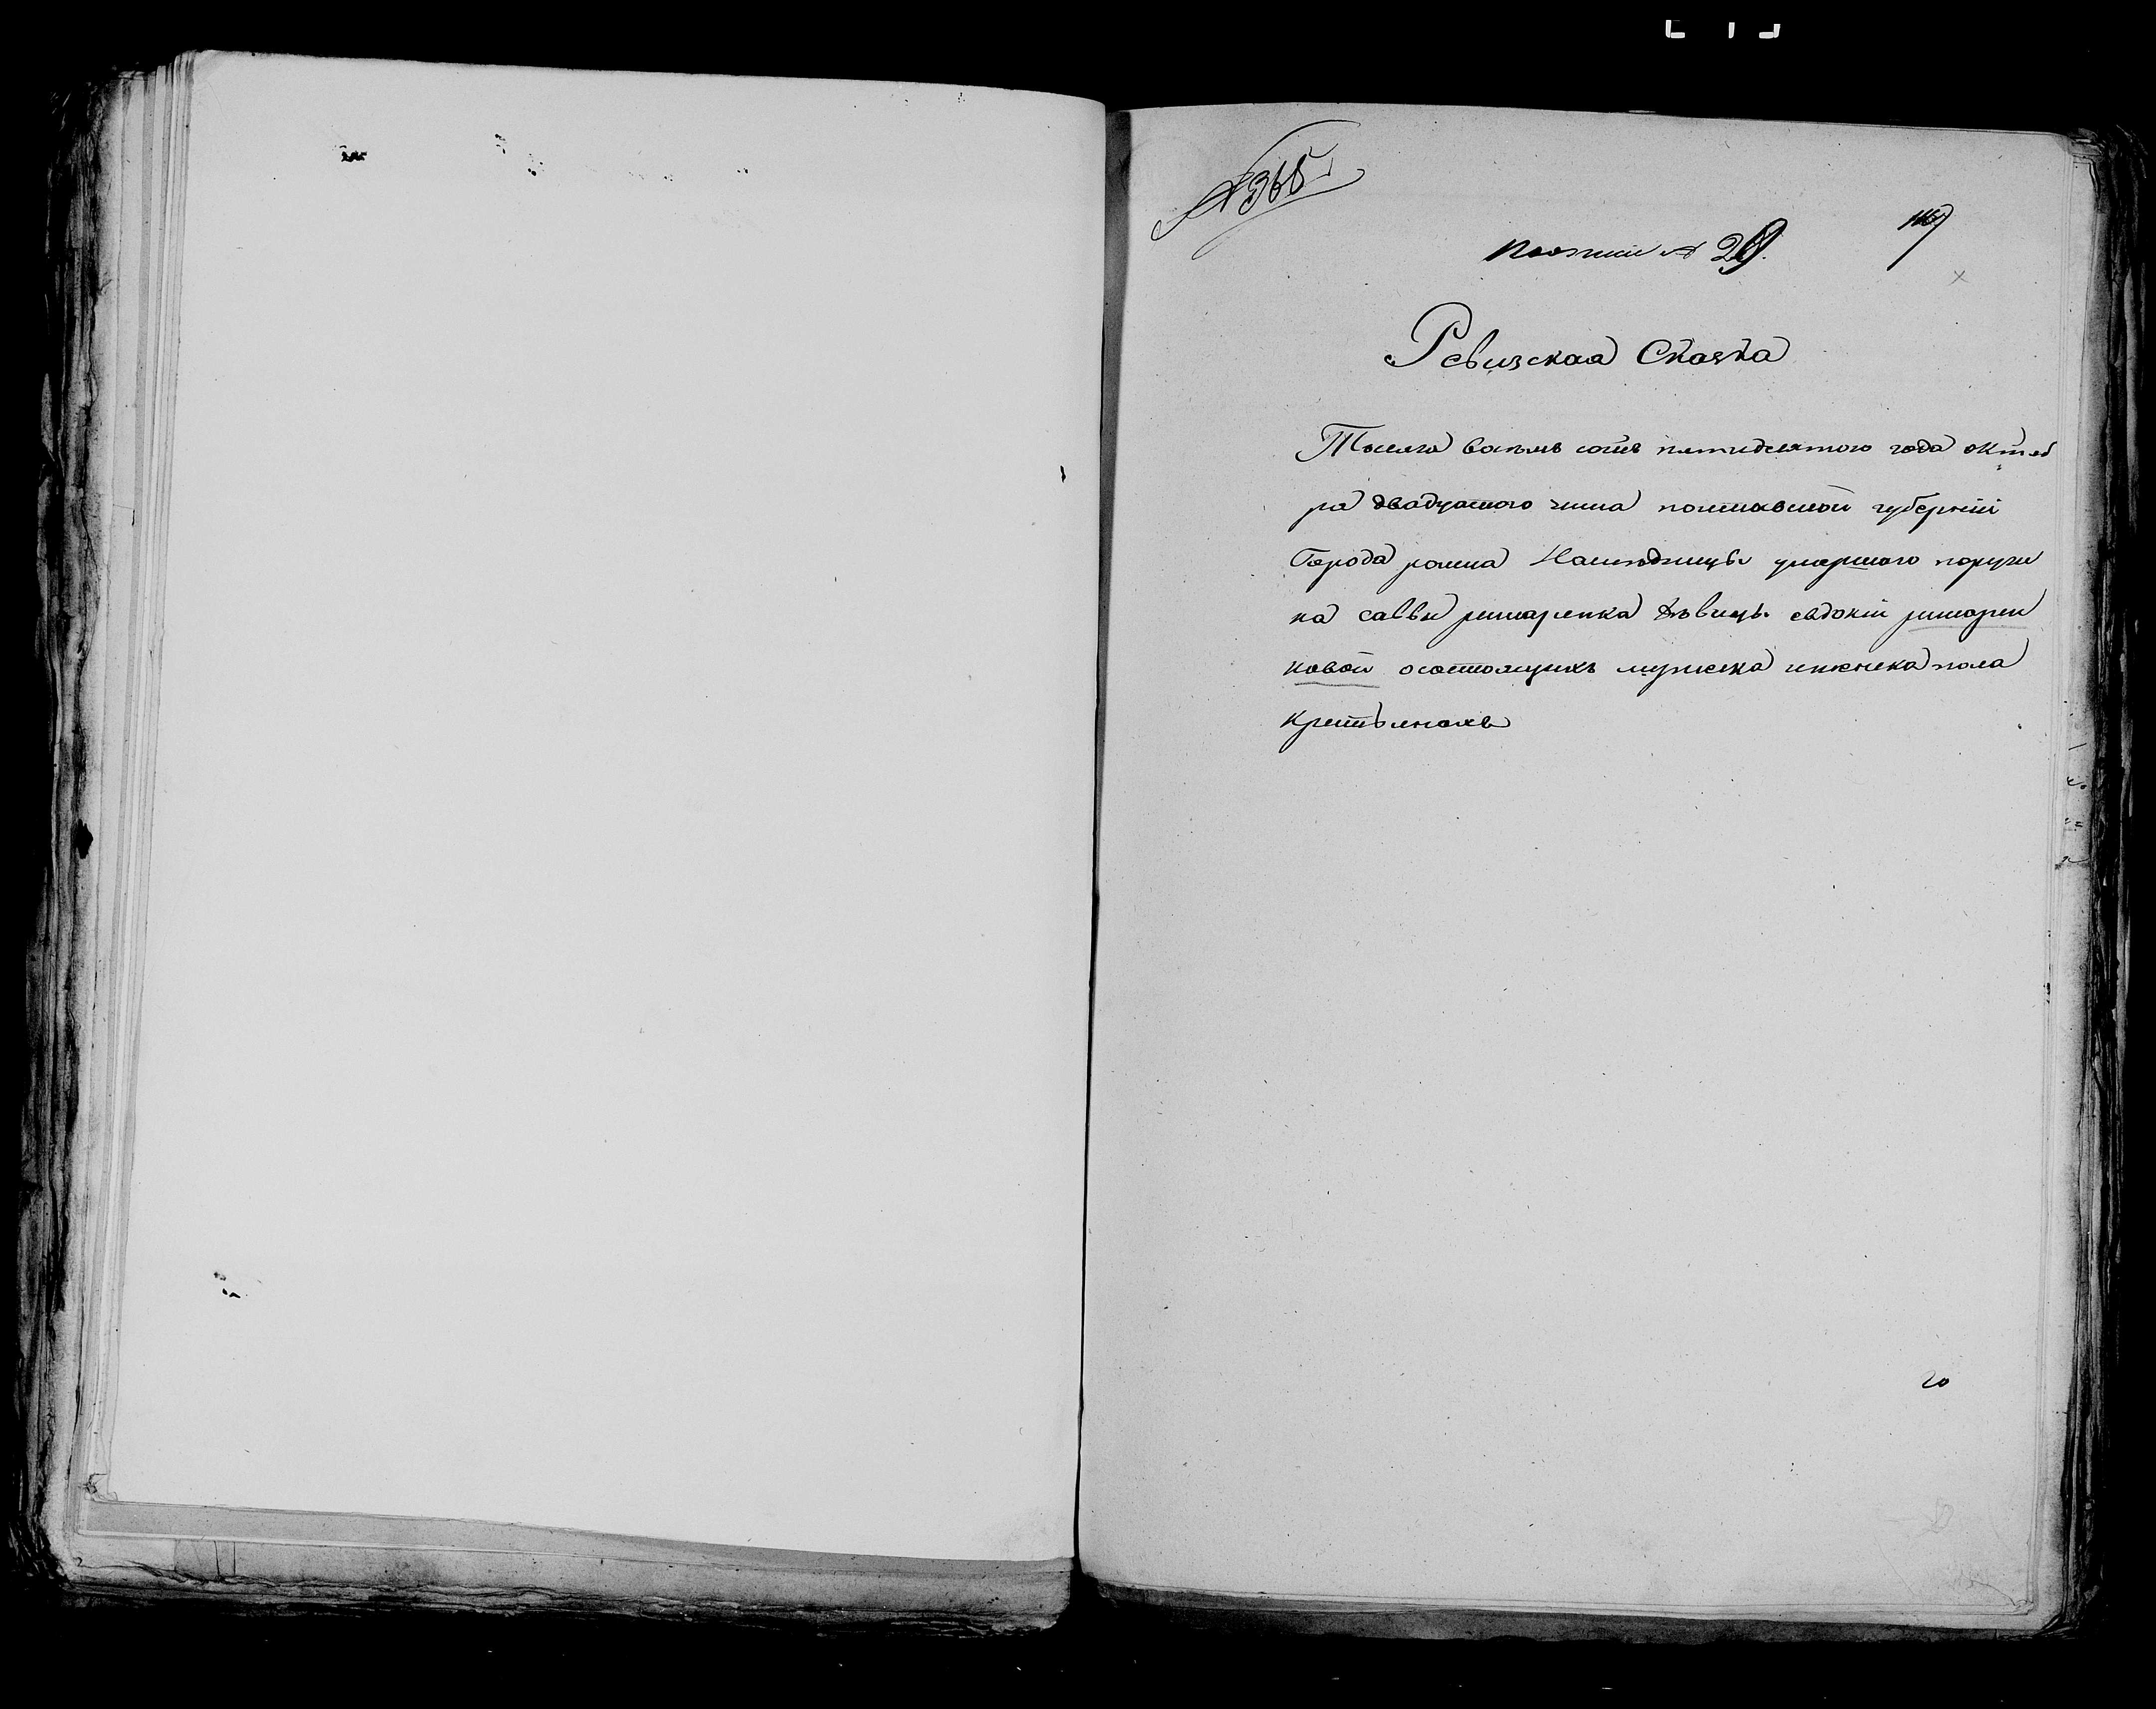 № 365
№ 29.
Ревизская Сказка
Тысяча восемь сотъ пятидесятого года октяб
ра двадцатого числа полтавской губерніи
Города ромна Наследницы умершого поручи
ка саввы римаренка дѣвицы евдокіи римарен
ковой осостоящихъ мужеска ижэнска пола
крестьянахъ
20